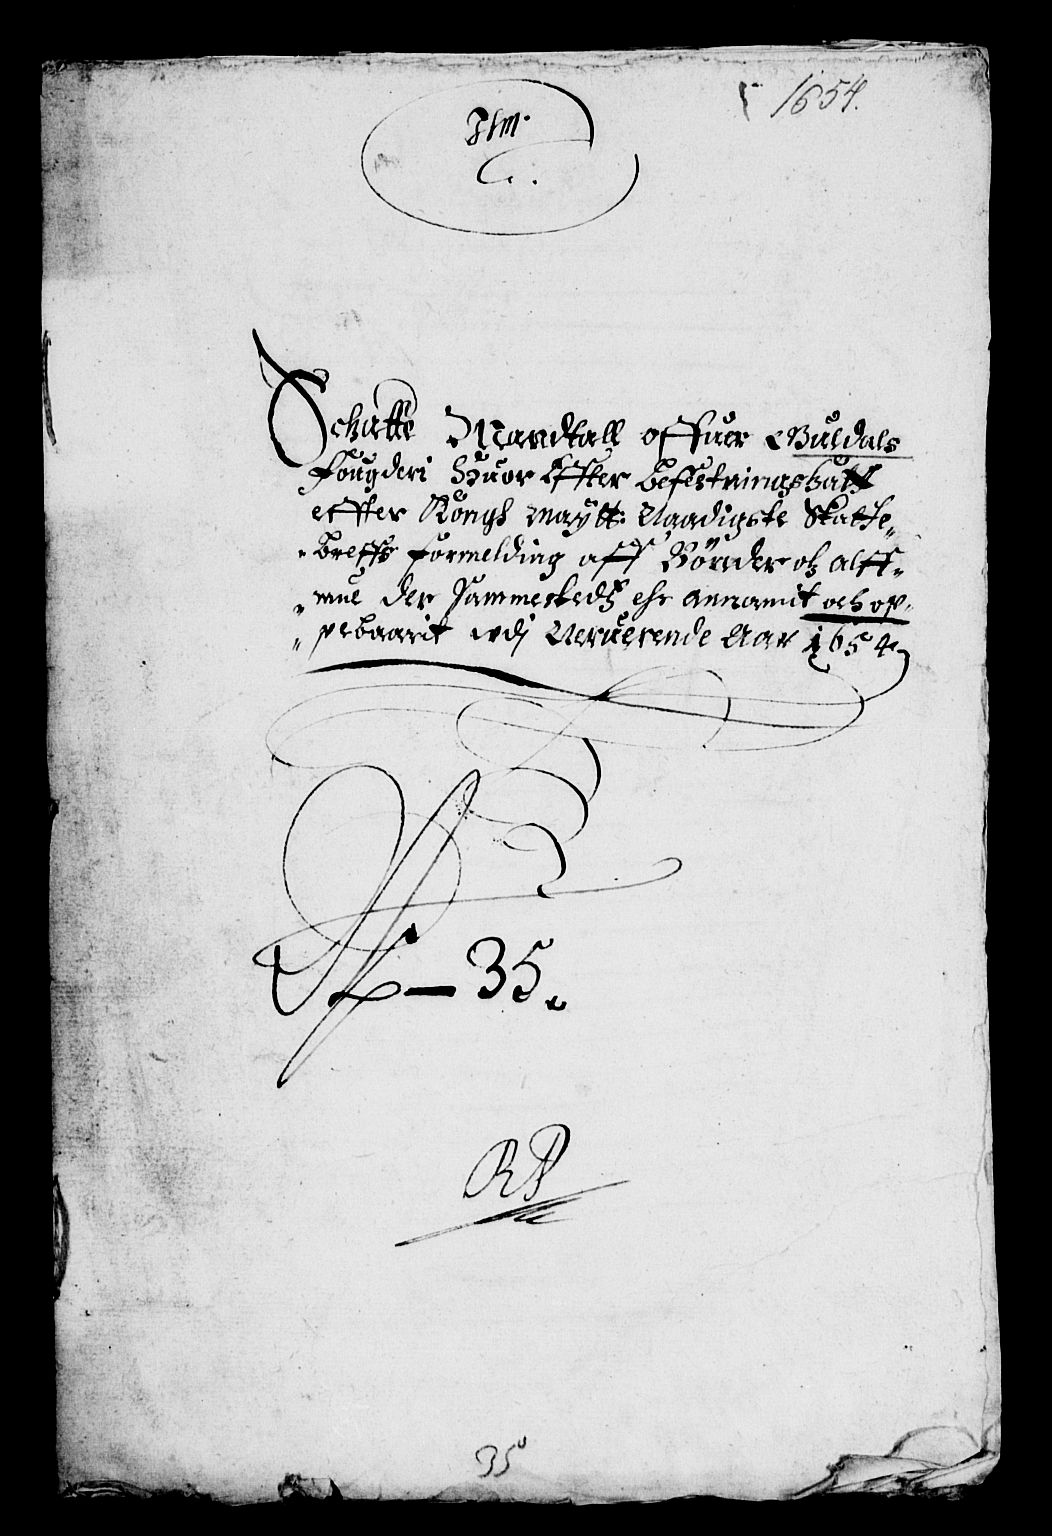 1654.
Schatte Mandtall offuer Guldals
fougderi Huor Effter befestningschatt
effter Kongl Maytt: Naadigste Skatte„
„breffs formelding aff Bönder och Alff„
„mue der Sammesteds ehr annamit och op„
„pebaarit udj Neruerende Aar 1654
N – 35.
RP
35